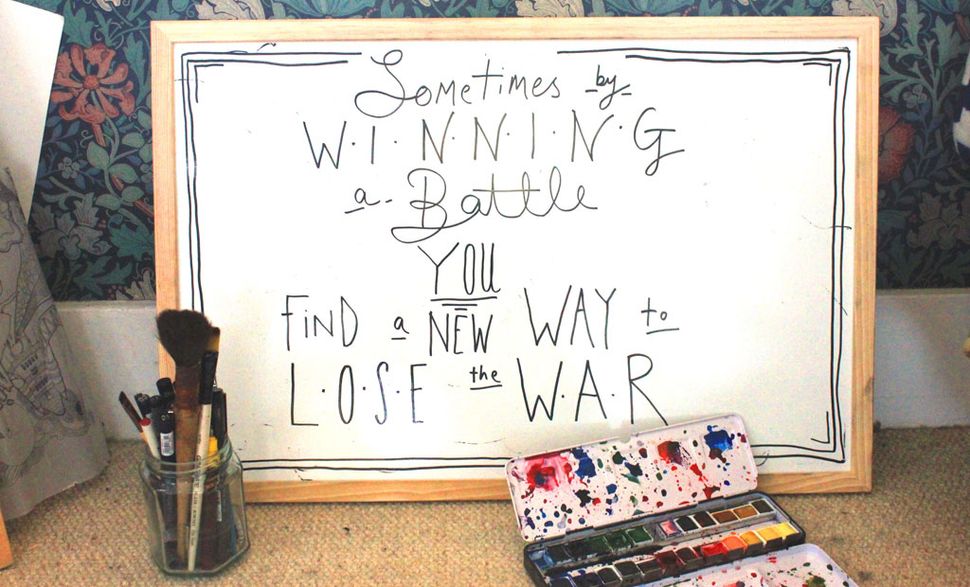 Sometimes by
W·I·N·N·I·N·G
a Battle
YOU
FiND a NEW WAY to
L·O·S·E the W·A·R